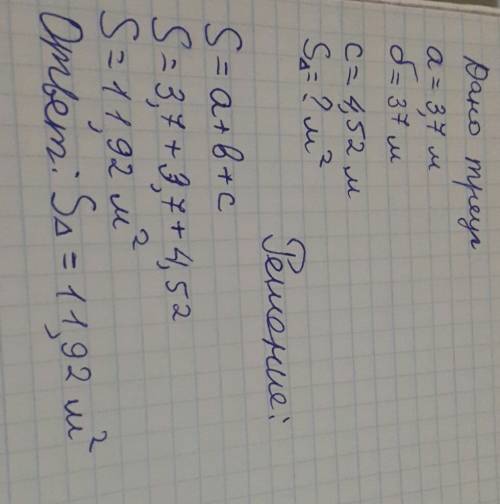 Дано треуг
a = 3,7 м
б = 37 м
c = 4,52 м
S∆ = ? м²
Решение:
S = a + в + c
S = 3,7 + 3,7 + 4,52
S = 11,92 м²
Ответ: S∆ = 11,92 м²